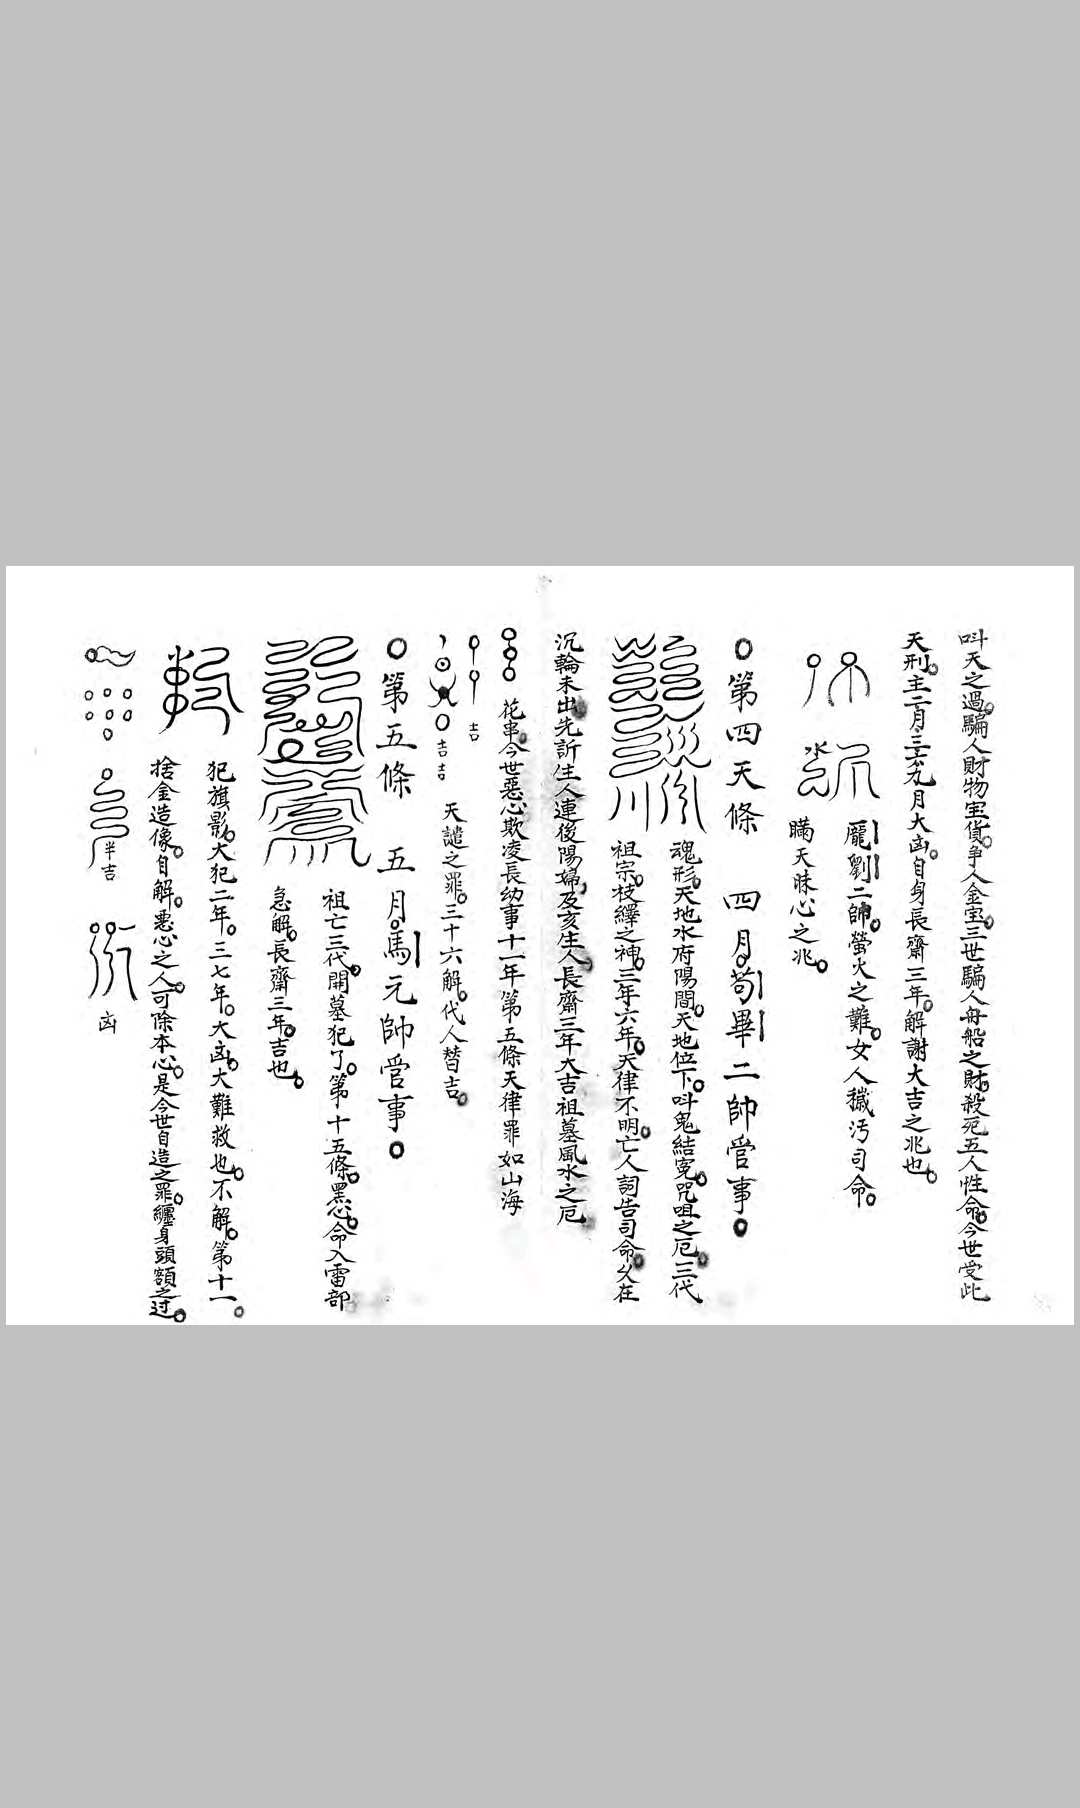 叫天之過。騙人財物宝貨。争人金宝。三世騙人舟船之財。殺死五人性命。今世受此
天刑。主二月三六九月大凶。自身長齋三年。解謝大吉之兆也。
龐劉二帥。螢火之難。女人穢污司命。
瞞天昧心之兆。
○第四天條 四月。苟畢二帥管事。
魂形。天地水府陽間。天地位下。叫鬼結寃。咒咀之厄。三代
祖宗。枝繹之神。三年六年。天律不明。亡人詞告司命。久在
沉輪未出先訢生人連後陽婦。及亥生人長齋三年大吉祖墓風水之厄
花串。今世惡心欺凌長幼事十一年第五條天律罪如山海
吉
吉吉
天譴之罪。三十六解。代人替吉。
○第五條 五月。馬元帥管事。
祖亡三代。開墓犯了。第十五條。罴心。命入雷部
急解。長齋三年。吉也。
犯旗影。大犯二年。三七年。大凶。大難救也。不解。第十一。
捨金造像。自解。悪心之人。可除本心。是今世自造之罪。纏身頭額之过。
半吉
凶